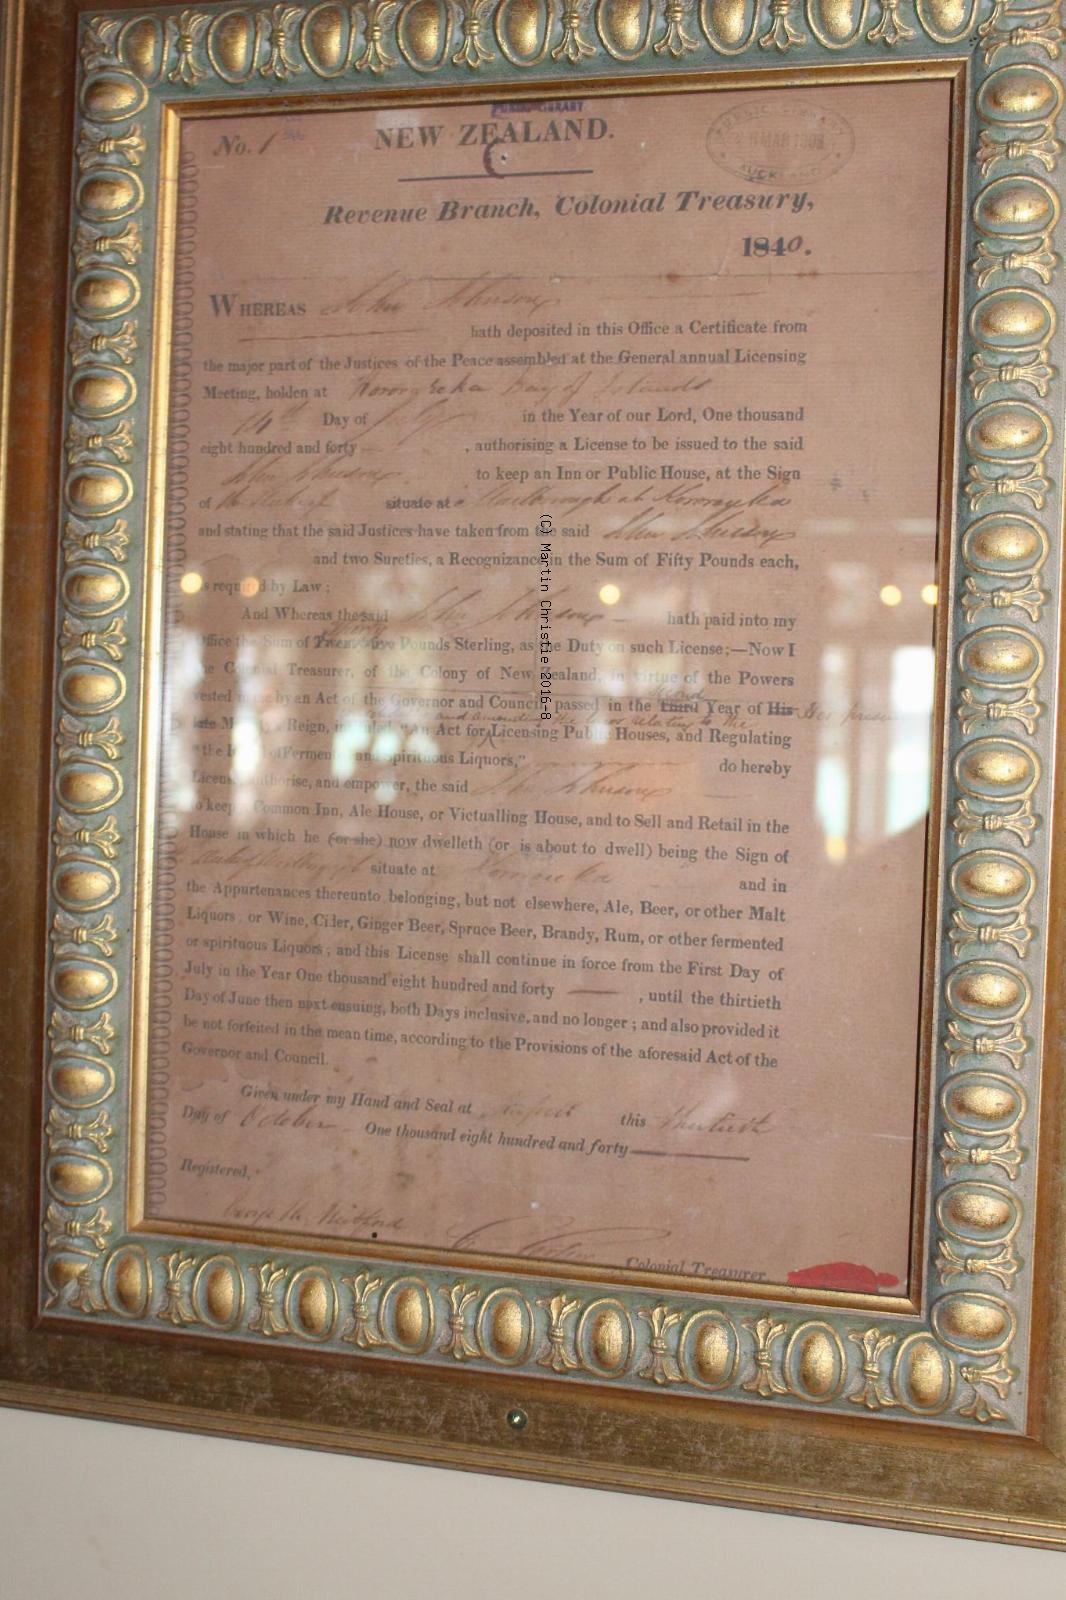 PUBLIC LIBRARY
No. 1
NEW ZEALAND.
PUBLIC LIBRARY
MAR
AUCKLAND
Revenue Branch, Colonial Treasury,
1840.
WHEREAS John Johnson
hath deposited in this Office a Certificate from
the major part of the Justices of the Peace assembled at the General annual Licensing
Meeting, holden at Kororareka Bay of Islands
Day of July in the Year of our Lord, One thousand
eight hundred and forty , authorising a License to be issued to the said
John Johnson to keep an Inn or Public House, at the Sign
of situate at Kororareka
and stating that the said Justices have taken from the said John Johnson
and two Sureties, a Recognizance in the Sum of Fifty Pounds each,
as required by Law ;
And Whereas the said John Johnson hath paid into my
Office the Sum of Twenty-five Pounds Sterling, as the Duty on such License;—Now I
the Colonial Treasurer, of the Colony of New Zealand, in virtue of the Powers
second
vested in me by an Act of the Governor and Council, passed in the Third Year of His Her present
and amending the laws relating to the
late Reign, "An Act for Licensing Public Houses, and Regulating
the of Fermented and Spirituous Liquors," do hereby
License, authorise, and empower, the said John Johnson
to keep a Common Inn, Ale House, or Victualling House, and to Sell and Retail in the
House in which he (or she) now dwelleth (or is about to dwell) being the Sign of
situate at Kororareka and in
the Appurtenances thereunto belonging, but not elsewhere, Ale, Beer, or other Malt
Liquors, or Wine, Cider, Ginger Beer, Spruce Beer, Brandy, Rum, or other fermented
or spirituous Liquors ; and this License shall continue in force from the First Day of
July in the Year One thousand eight hundred and forty , until the thirtieth
Day of June then next ensuing, both Days inclusive, and no longer ; and also provided it
be not forfeited in the mean time, according to the Provisions of the aforesaid Act of the
Governor and Council.
Given under my Hand and Seal at this Thirtieth
Day of October One thousand eight hundred and forty
Registered,
Colonial Treasurer.
(C) Martin Christie 2016-8